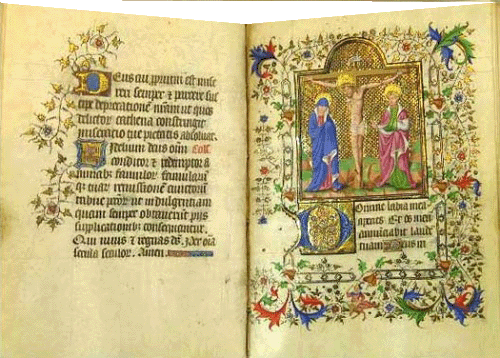 Deus cui propriu est mise
reri semper ⁊ parcere sus
cipe deprecationē nram ut quos
delictor cathena constringit
miseracio tue pietatis absoluat
Fidelium deus oīm Coll
conditor ⁊ redemptor
animabꝫ famulor famularu
remissionē cunctor
tribue ut indulgentiam
quam semper obtauerūt pijs
supplicationibꝫ consequantur.
Qui uiuis ⁊ regnas ds. per oīa
secula seculor. Amen
Domine labia mea
aperies Et os meū
annuciabit laudē
tuam Deus in